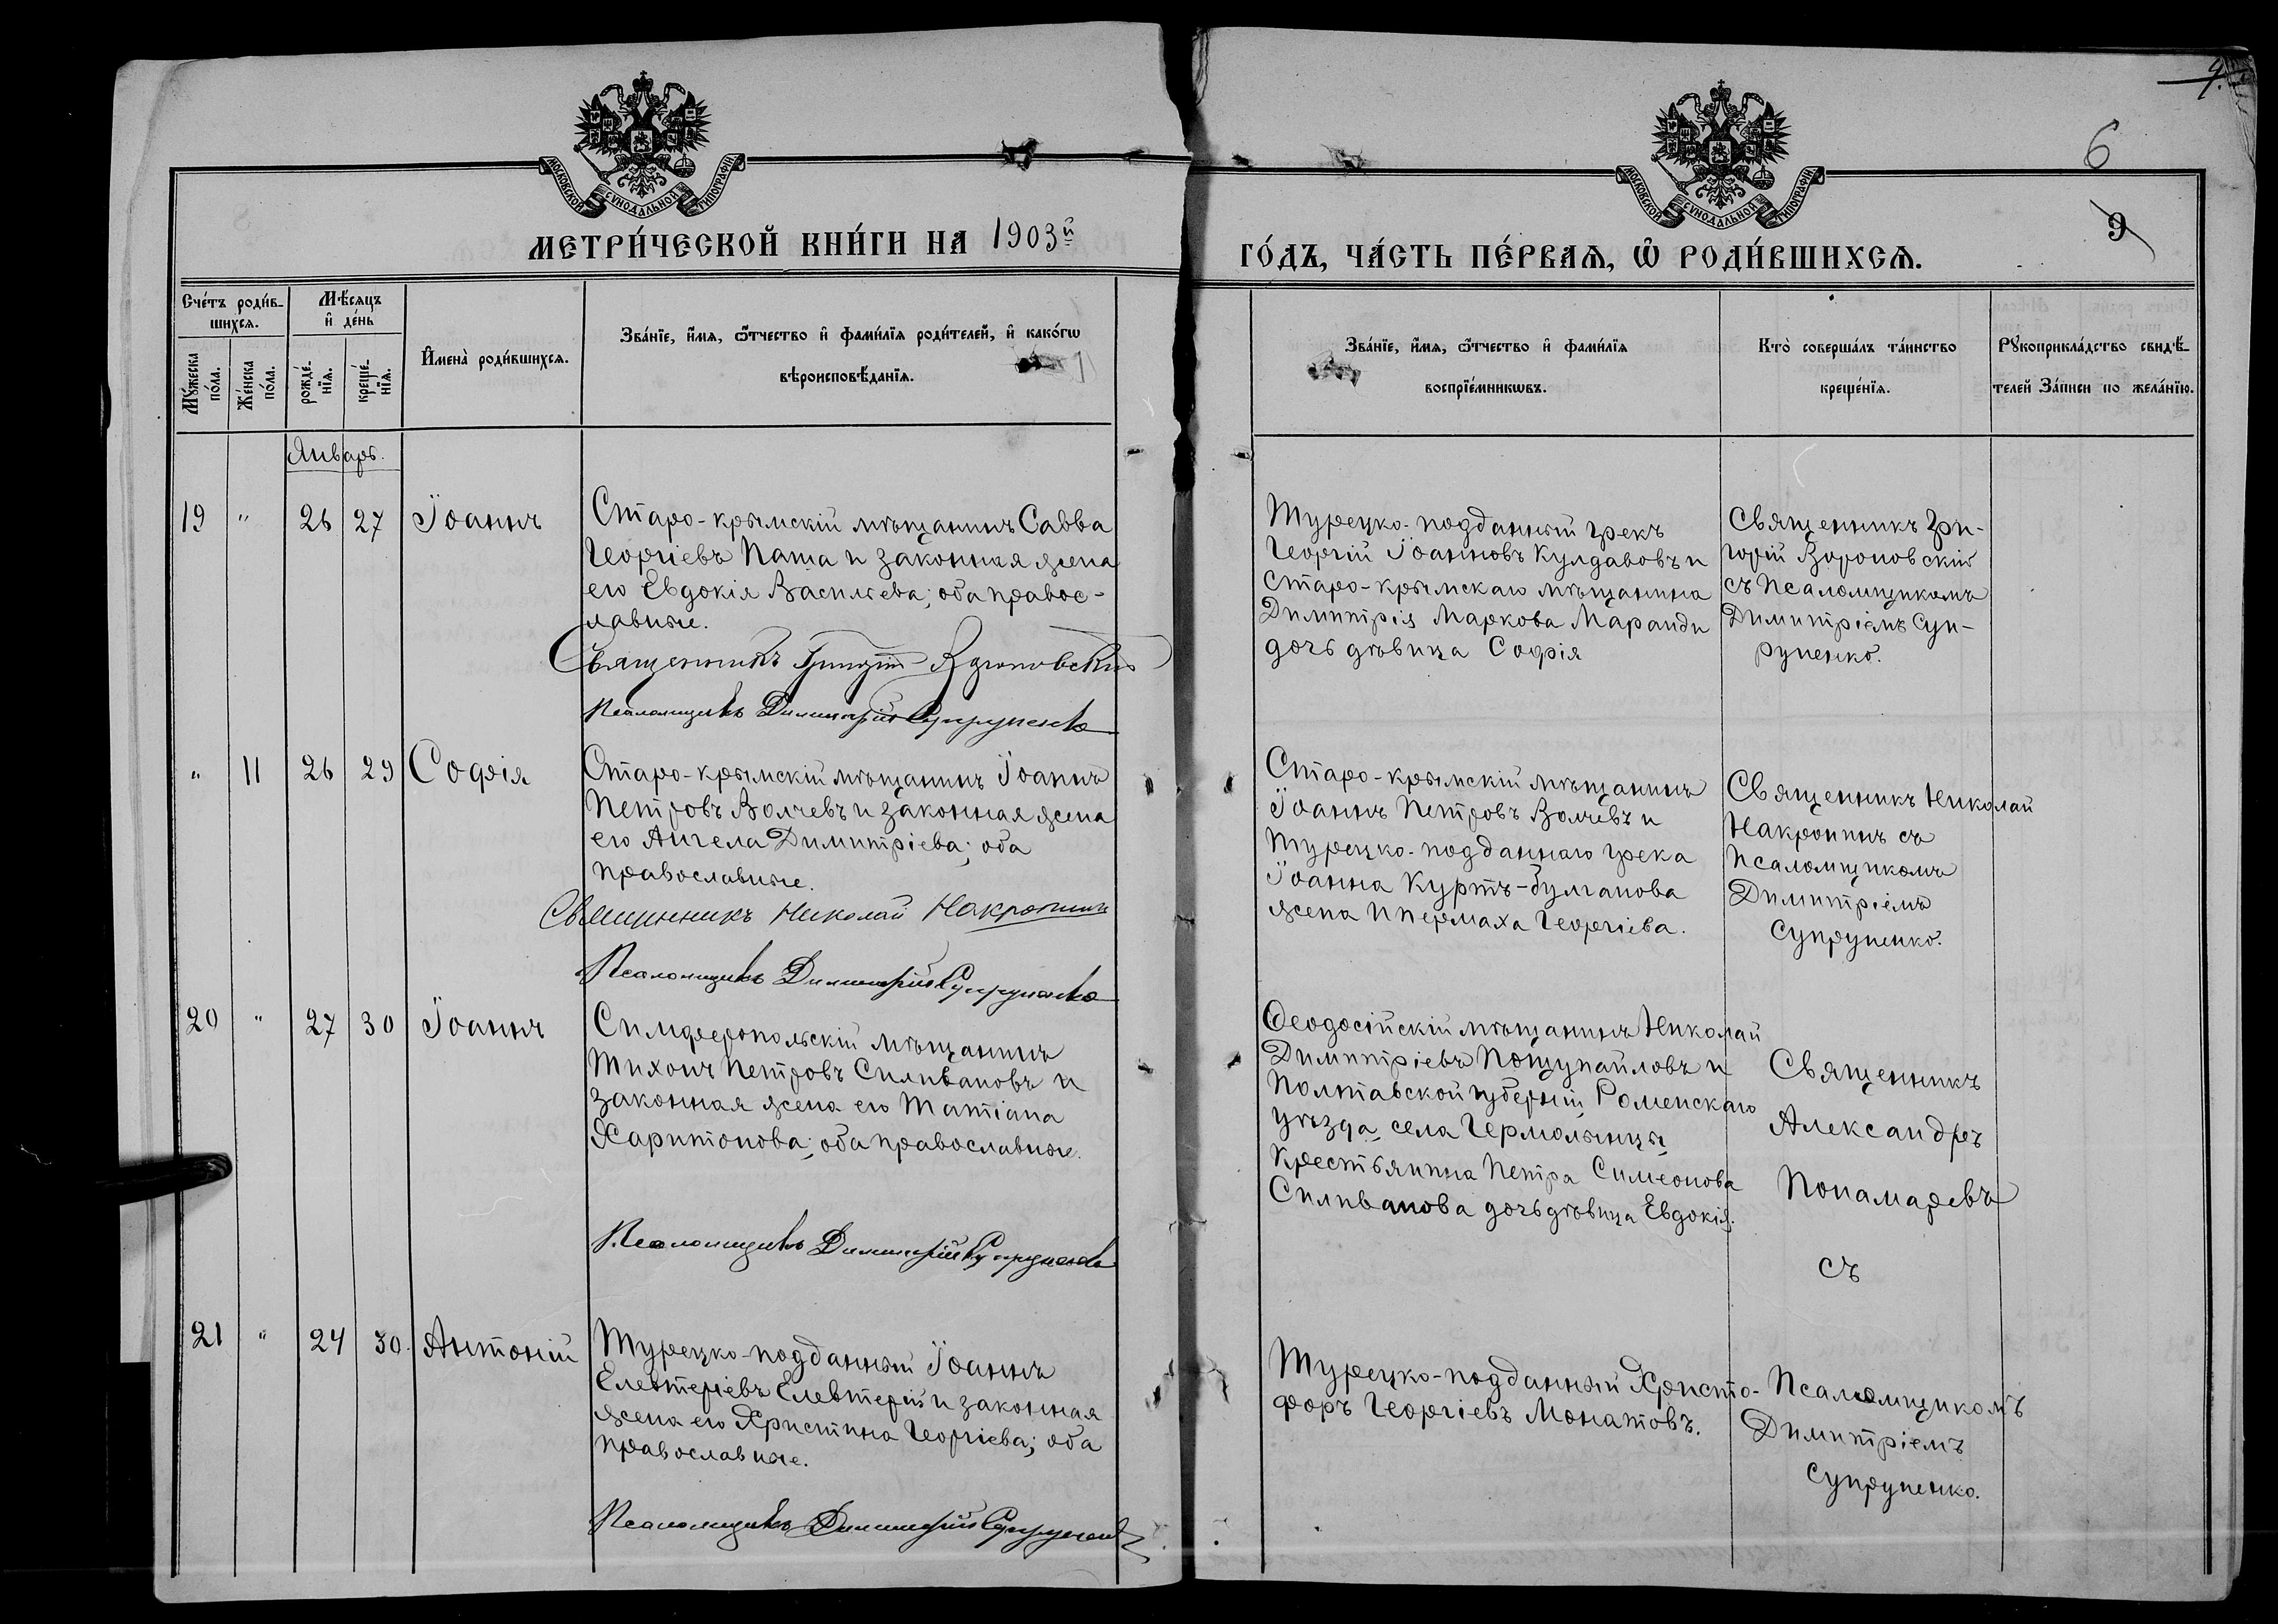 9.
6
9
МОСКОВСКОЙ СѴНОДАЛЬНОЙ ТИПОГРАФІИ
МОСКОВСКОЙ СѴНОДАЛЬНОЙ ТИПОГРАФІИ
МЕТРИ́ЧЕСКОЙ КНИ́ГИ НА 1903й
ГО́ДЪ, ЧА́СТЬ ПЕ́РВАѦ, Ѡ҆ РОДИ́ВШИХСѦ.
Сче́тъ роди́в-
шихсѧ.
Му́жеска
по́ла.
Же́нска
по́ла.
Мѣ́сѧцъ
и҆ де́нь
рожде́-
нїѧ.
креще́-
нїѧ.
И҆мена̀ роди́вшихсѧ.
Зва́нїе, и҆́мѧ, ѻ҆́тчество и҆ фами́лїѧ роди́телей, и҆ како́гѡ
вѣроисповѣ́данїѧ.
Зва́нїе, и҆́мѧ, ѻ҆́тчество и҆ фами́лїѧ
воспрїе́мникѡвъ.
Кто̀ соверша́лъ та́инство
креще́нїѧ.
Рꙋкоприкла́дство свидѣ́-
телей За́писи по жела́нїю.
Январь.
19 " 26 27 Іоаннъ
Старо-крымскій мѣщанинъ Савва
Георгіевъ Паша и законная жена
его Евдокія Васильева; оба правос-
лавные.
Священникъ Григорій Вороновскій
Псаломщикъ Димитрій Супруненко
Турецко-подданный грекъ
Георгій Іоанновъ Кулдавовъ и
Старо-крымскаго мѣщанина
Димитрія Маркова Маранди
дочь дѣвица Софія
Священникъ Гри-
горій Вороновскій
съ Псаломщикомъ
Димитріемъ Суп-
руненко.
" 11 26 29 Софія
Старо-крымскій мѣщанинъ Іоаннъ
Петровъ Волчевъ и законная жена
его Ангела Димитріева; оба
православные.
Священникъ Николай Накропинъ
Псаломщикъ Димитрій Супруненко
Старо-крымскій мѣщанинъ
Іоаннъ Петровъ Волчевъ и
Турецко-подданнаго грека
Іоанна Куртъ-булганова
жена Ипермаха Георгіева.
Священникъ Николай
Накропинъ съ
Псаломщикомъ
Димитріемъ
Супруненко.
20 " 27 30 Іоаннъ
Симферопольскій мѣщанинъ
Тихонъ Петровъ Силивановъ и
законная жена его Татіана
Харитонова; оба православные.
Псаломщикъ Димитрій Супруненко
Ѳеодосійскій мѣщанинъ Николай
Димитріевъ Пощупайловъ и
Полтавской губерніи Роменскаго
уѣзда, села Гермолинцы
Крестьянина Петра Симеонова
Силиванова дочь дѣвица Евдокія.
Священникъ
Александръ
Понамаревъ
съ
21 " 24 30. Антоній
Турецко-подданный Іоаннъ
Елевтеріевъ Елевтерій и законная
жена его Христина Георгіева; оба
православные.
Псаломщикъ Димитрій Супруненко
Турецко-подданный Христо-
форъ Георгіевъ Монатовъ.
Псаломщикомъ
Димитріемъ
Супруненко.